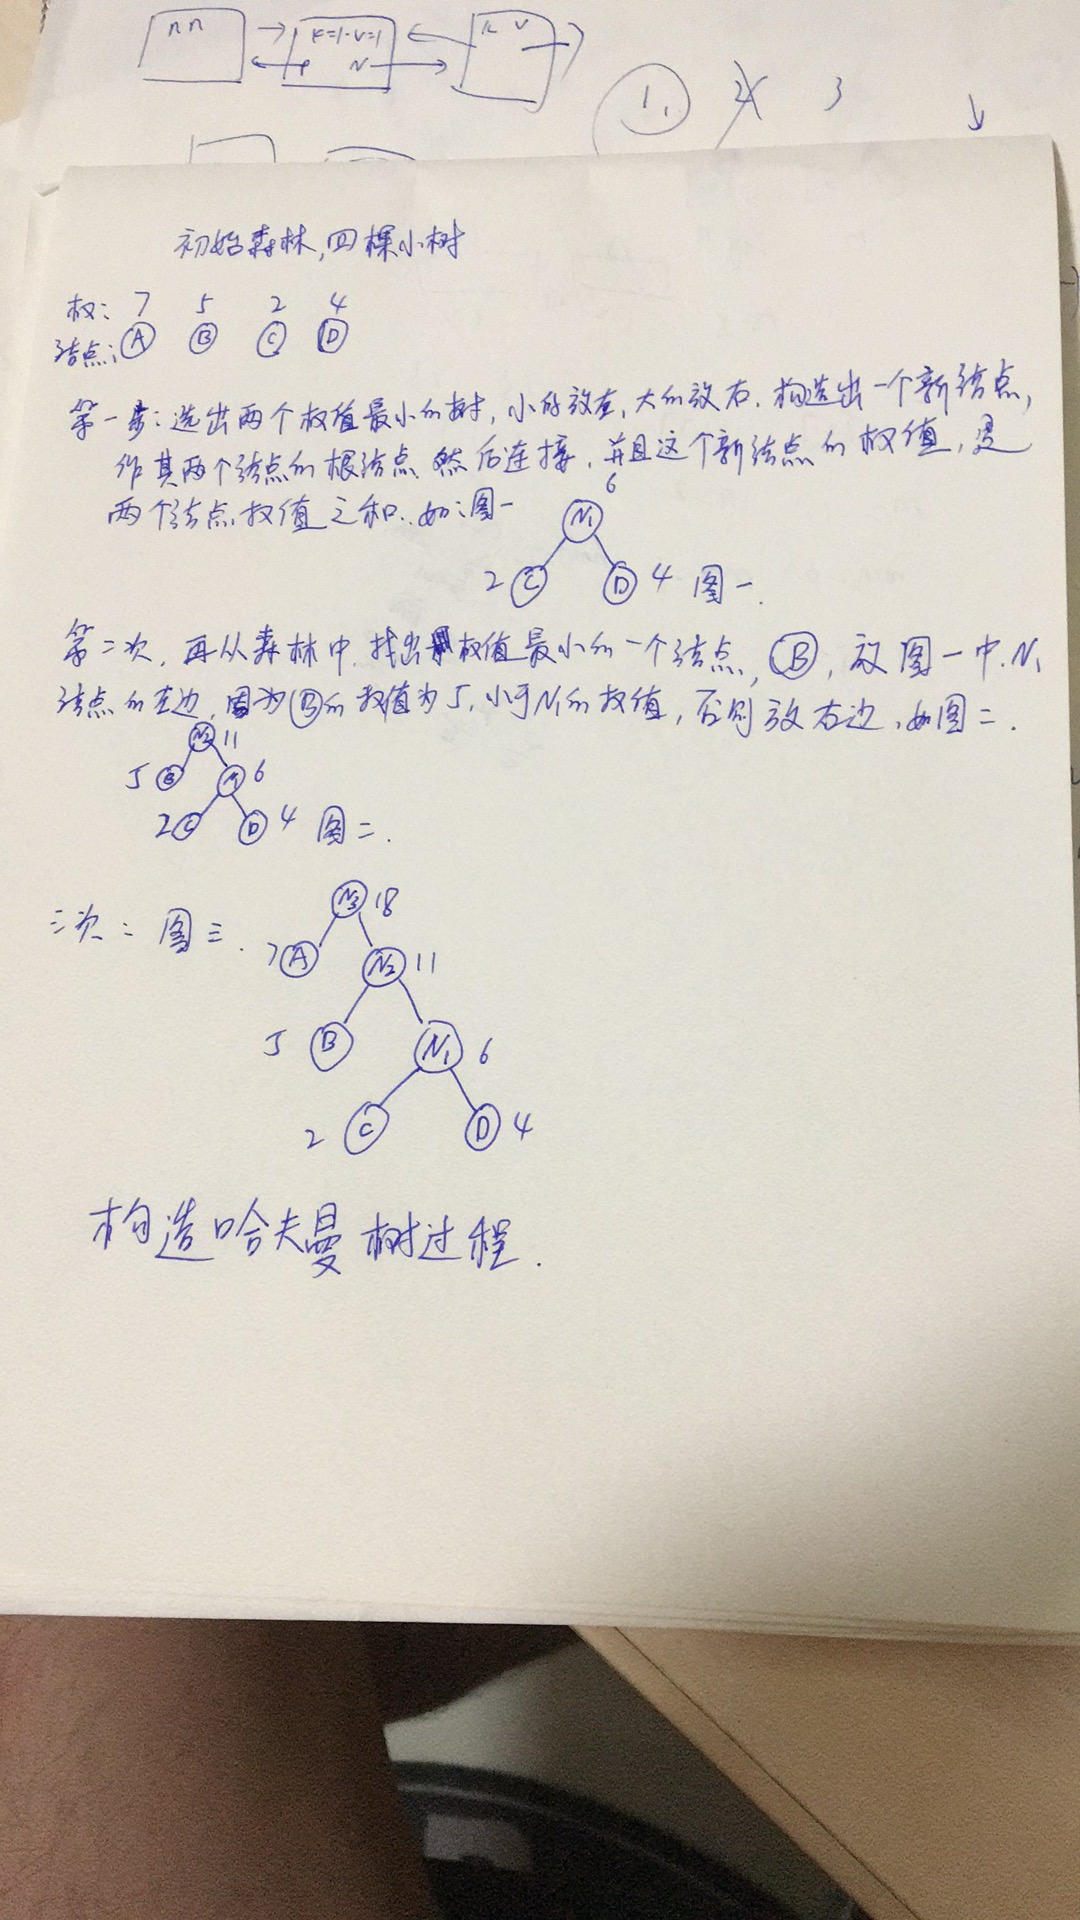 n n
K=1-V=1
N
K V
1.
3
初始森林,四棵小树
权: 7 5 2 4
结点: A B C D
第一步:选出两个权值最小的树,小的放左,大的放右.构造出一个新结点,
作其两个结点的根结点.然后连接,并且这个新结点的权值,是
两个结点权值之和.如:图一
6
N1
2 C D 4 图一.
第二次,再从森林中,找出权值最小的一个结点,B,放图一中.N1
结点的左边,因为B的权值为5,小于N1的权值,否则放右边,如图二.
N2 11
5 B N1 6
2 C D 4 图二.
N3 18
三次:图三.
7 A N2 11
5 B N1 6
2 C D 4
构造哈夫曼树过程.